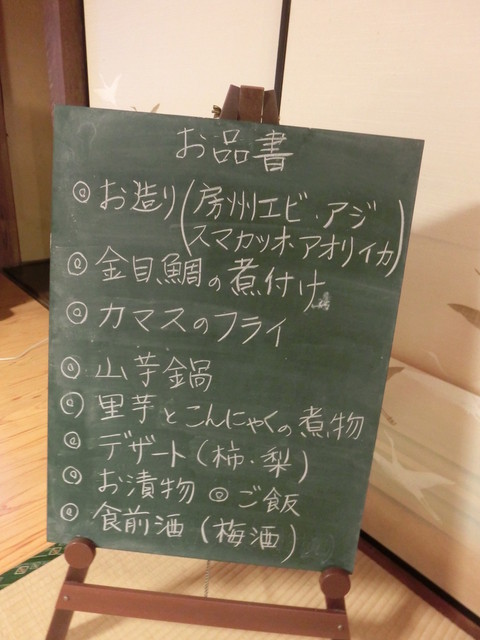 お品書
◎お造り(房州エビ・アジ
スマカツオ・アオリイカ)
◎金目鯛の煮付け
◎カマスのフライ
◎山芋鍋
◎里芋とこんにゃくの煮物
◎デザート(柿・梨)
◎お漬物 ◎ご飯
◎食前酒(梅酒)